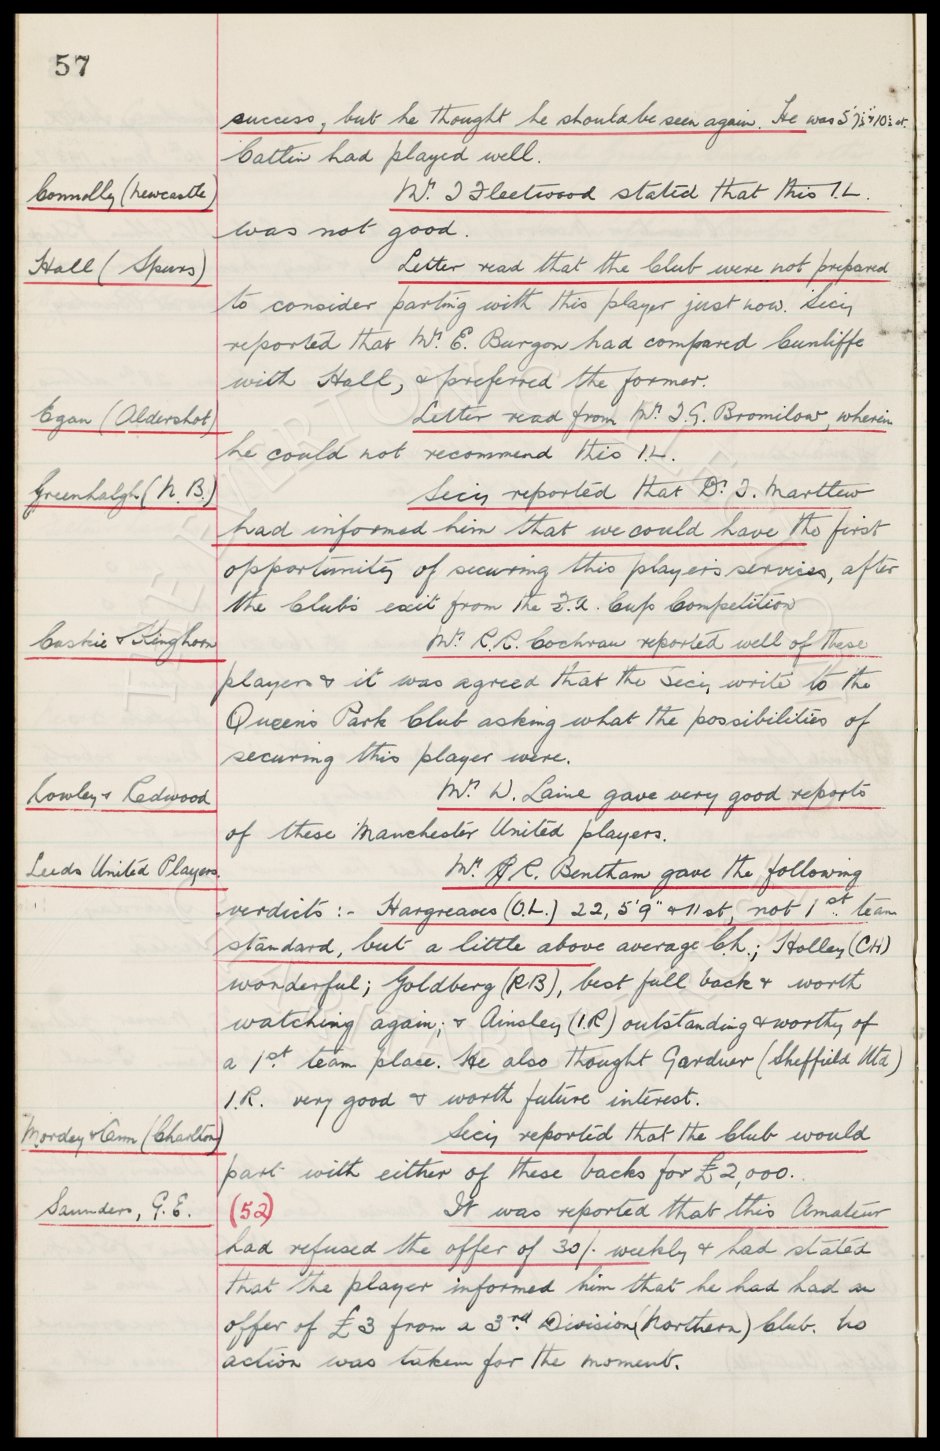 57
success, but he thought he should be seen again. He was 5'7½" & 10½ st.
Catlin had played well.
Connolly (Newcastle) Mr. J Fleetwood stated that this I.L.
was not good.
Hall (Spurs) Letter read that the Club were not prepared
to consider parting with this player just now. Secy
reported that Mr. E. Burgon had compared Cunliffe
with Hall, & preferred the former.
Egan (Aldershot) Letter read from Mr. T.G. Bromilow, wherein
he could not recommend this I.L.
Greenhalgh (N.B.) Secy reported that Dr. J.
had informed him that we could have the first
opportunity of securing this player's services, after
the Club's exit from the F.A. Cup Competition
Caskie & Kinghorn Mr. R.R. Cochran reported well of these
players & it was agreed that the Secy write to the
Queen's Park Club asking what the possibilities of
securing this player were.
Rowley & Redwood Mr. W. Laine gave very good reports
of these Manchester United players.
Leeds United Players. Mr. R. Bentham gave the following
verdicts :- Hargreaves (O.L.) 22, 5'9" & 11 st, not 1st. team
standard, but a little above average Ch.; Holley (CH)
wonderful; Goldberg (R.B), best full back & worth
watching again; & Ainsley (I.R) outstanding & worthy of
a 1st. team place. He also thought Gardner (Sheffield Utd)
I.R. very good & worth future interest.
Mordey & Cann (Charlton) Secy reported that the Club would
part with either of these backs for £2,000.
Saunders, G.E. (52) It was reported that this Amateur
had refused the offer of 30/- weekly & had stated
that the player informed him that he had had an
offer of £3 from a 3rd Division (Northern) Club. No
action was taken for the moment.